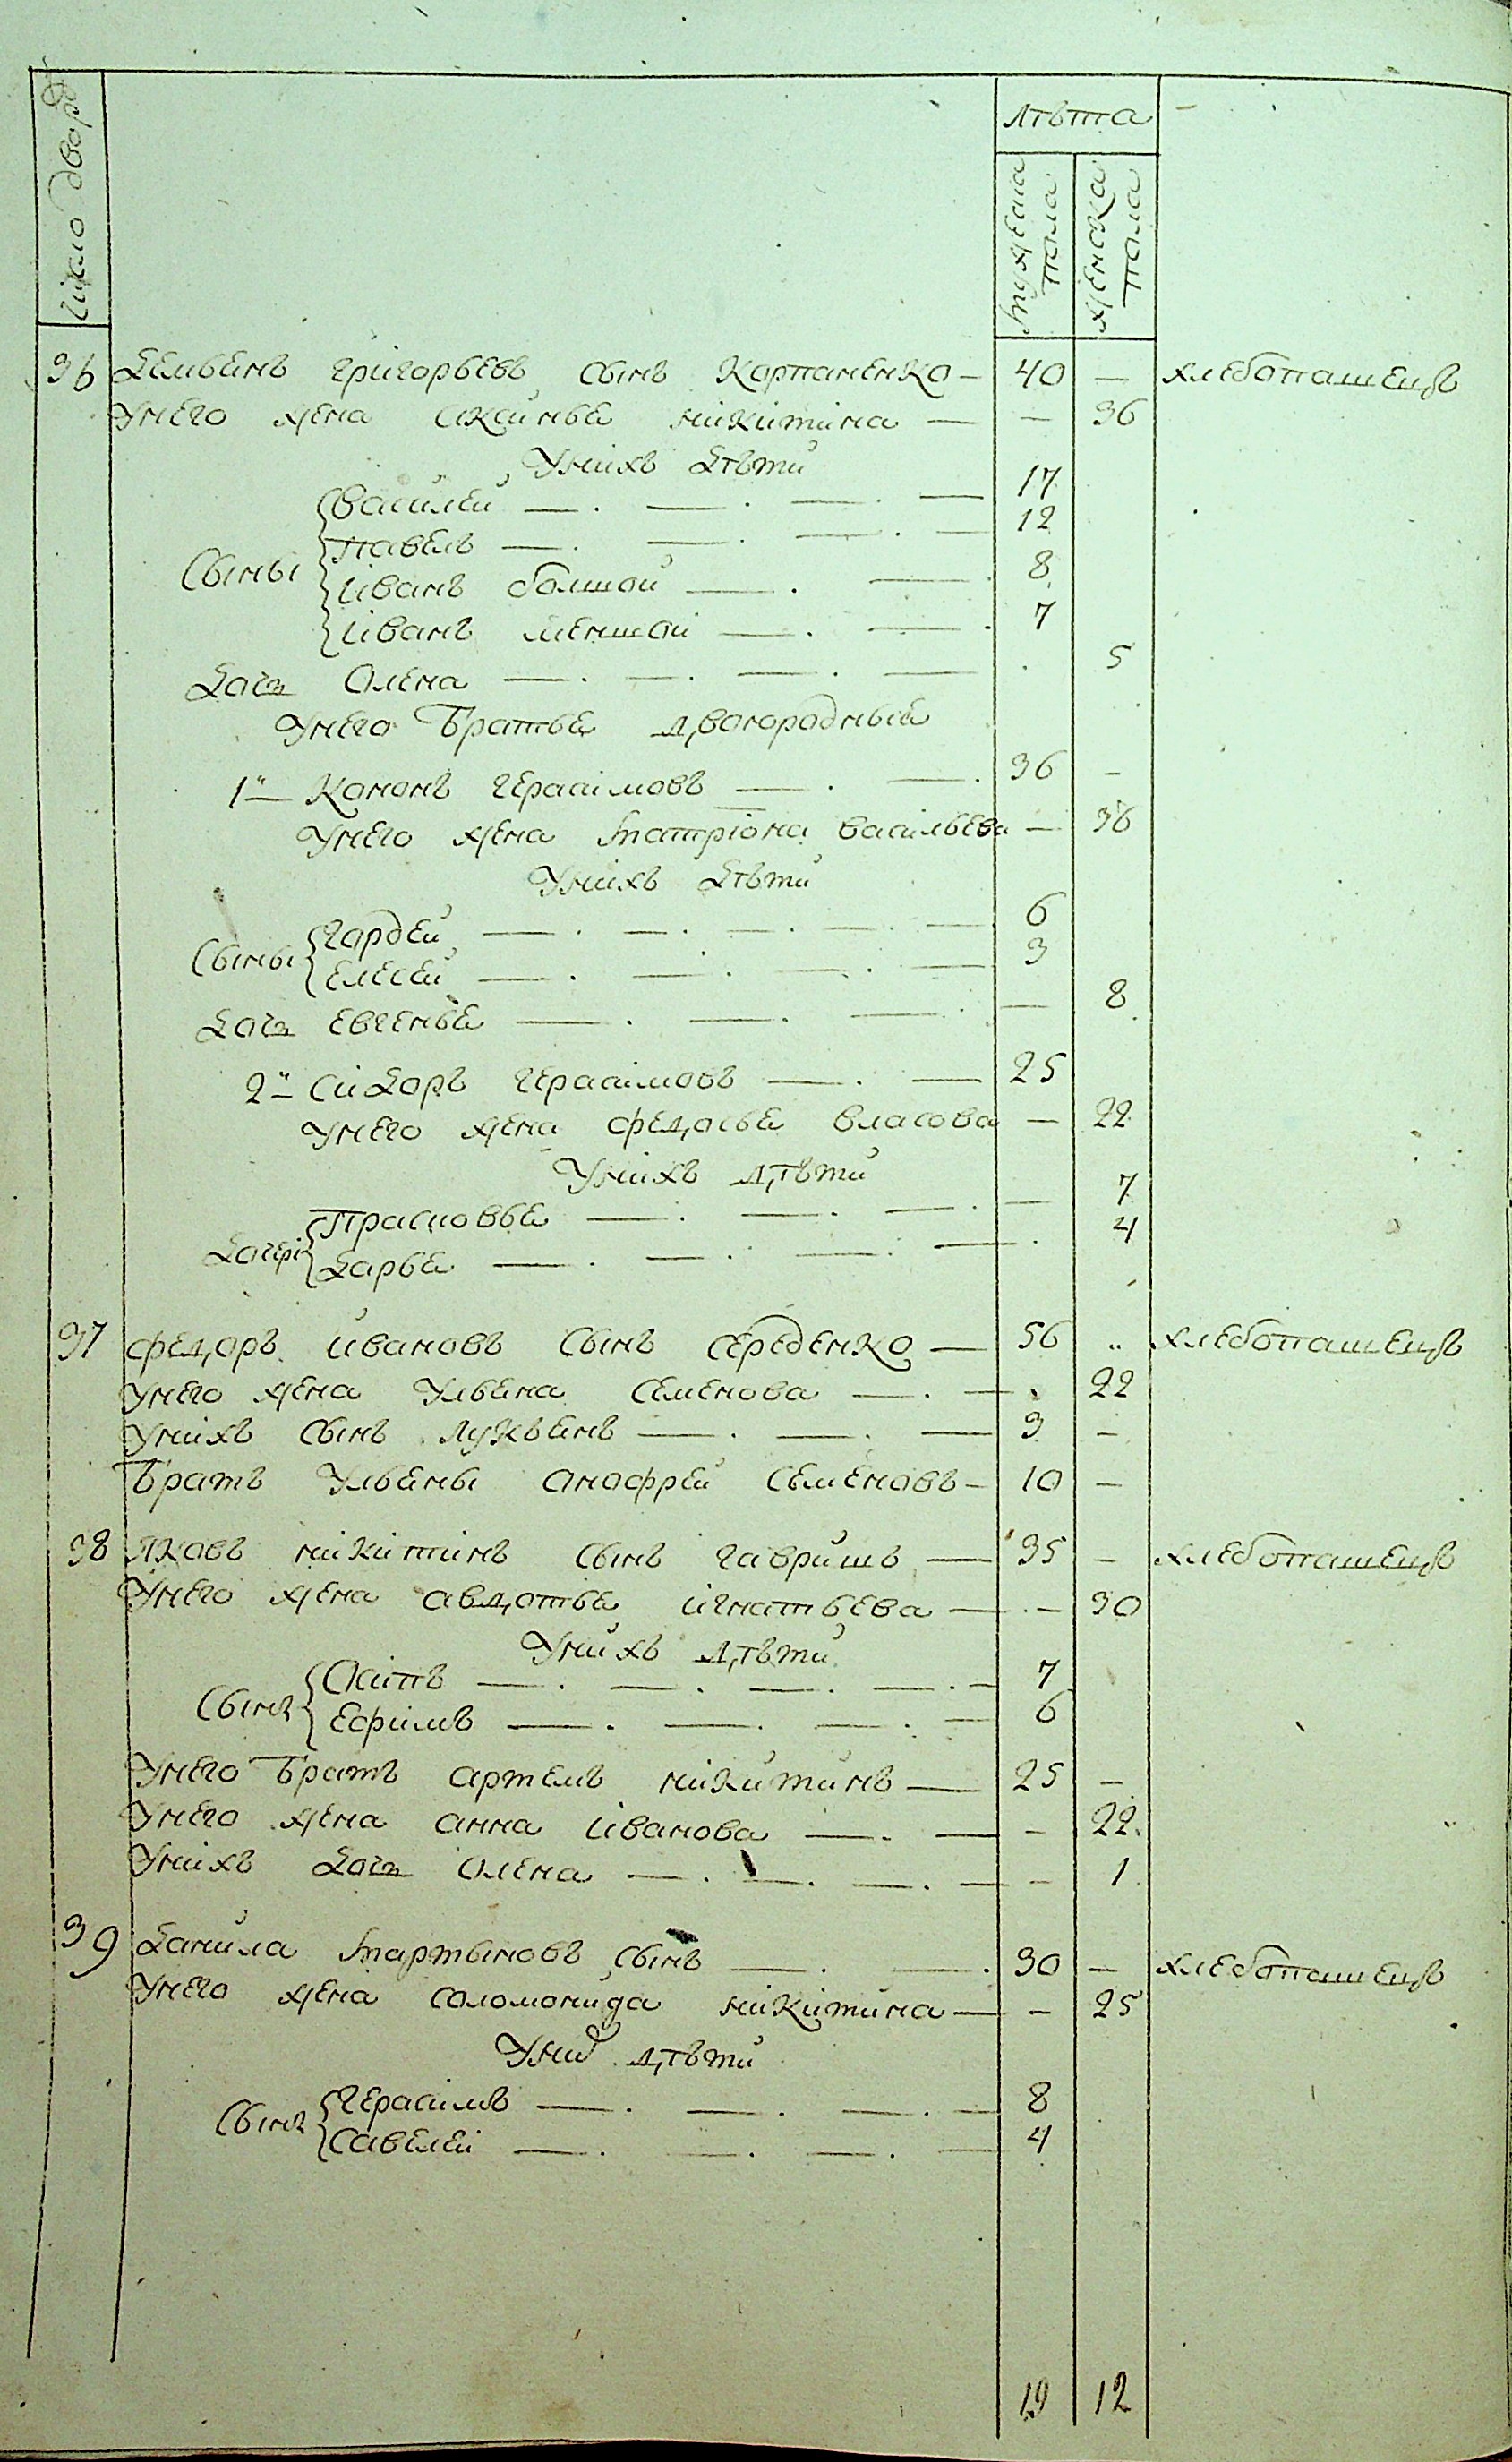 число дворовъ
лѣта
мужеска пола
женска пола
36 Демьянъ григорьевъ сынъ Корпаненко — 40 — хлебопашецъ
Унего жена акси́нья никитина — — 36
Унихъ дѣти
василей — 17
павелъ — 12
Сыны
Иванъ болшой — 8
Иванъ меншой — 7
Дочь Олена — 5
Унего братья двоюродныя
1й Кононъ герасимовъ — 36 —
Унего жена матріона васильева — 36
Унихъ дѣти
Сыны гордей — 6
елесей — 3
Дочь евгенья — 8
2й Сидоръ герасимовъ — 25
Унего жена федосья власова — 22
Унихъ дѣти
Прасковья — 7
Дочери
Дарья — 4
37 федоръ ивановъ сынъ середенко — 56 „ хлебопашецъ
Унего жена Ульяна семенова — 22
Унихъ сынъ Лукьянъ — 3 —
братъ Ульяны анофрей семеновъ — 10 —
38 Яковъ никитинъ сынъ гавришъ — 35 — хлебопашецъ
Унего жена авдотья игнатьева — 30
Унихъ дѣти
Осипъ — 7
Сыны
ефимъ — 6
Унего братъ артемъ никитинъ — 25 —
Унего жена анна иванова — — 22
Унихъ дочь олена — — 1
39 Данила мартыновъ сынъ — 30 — хлебопашецъ
Унего жена соломонида никитина — — 25
Унихъ дѣти
герасимъ — 8
Сыны
савелей — 4
19 12